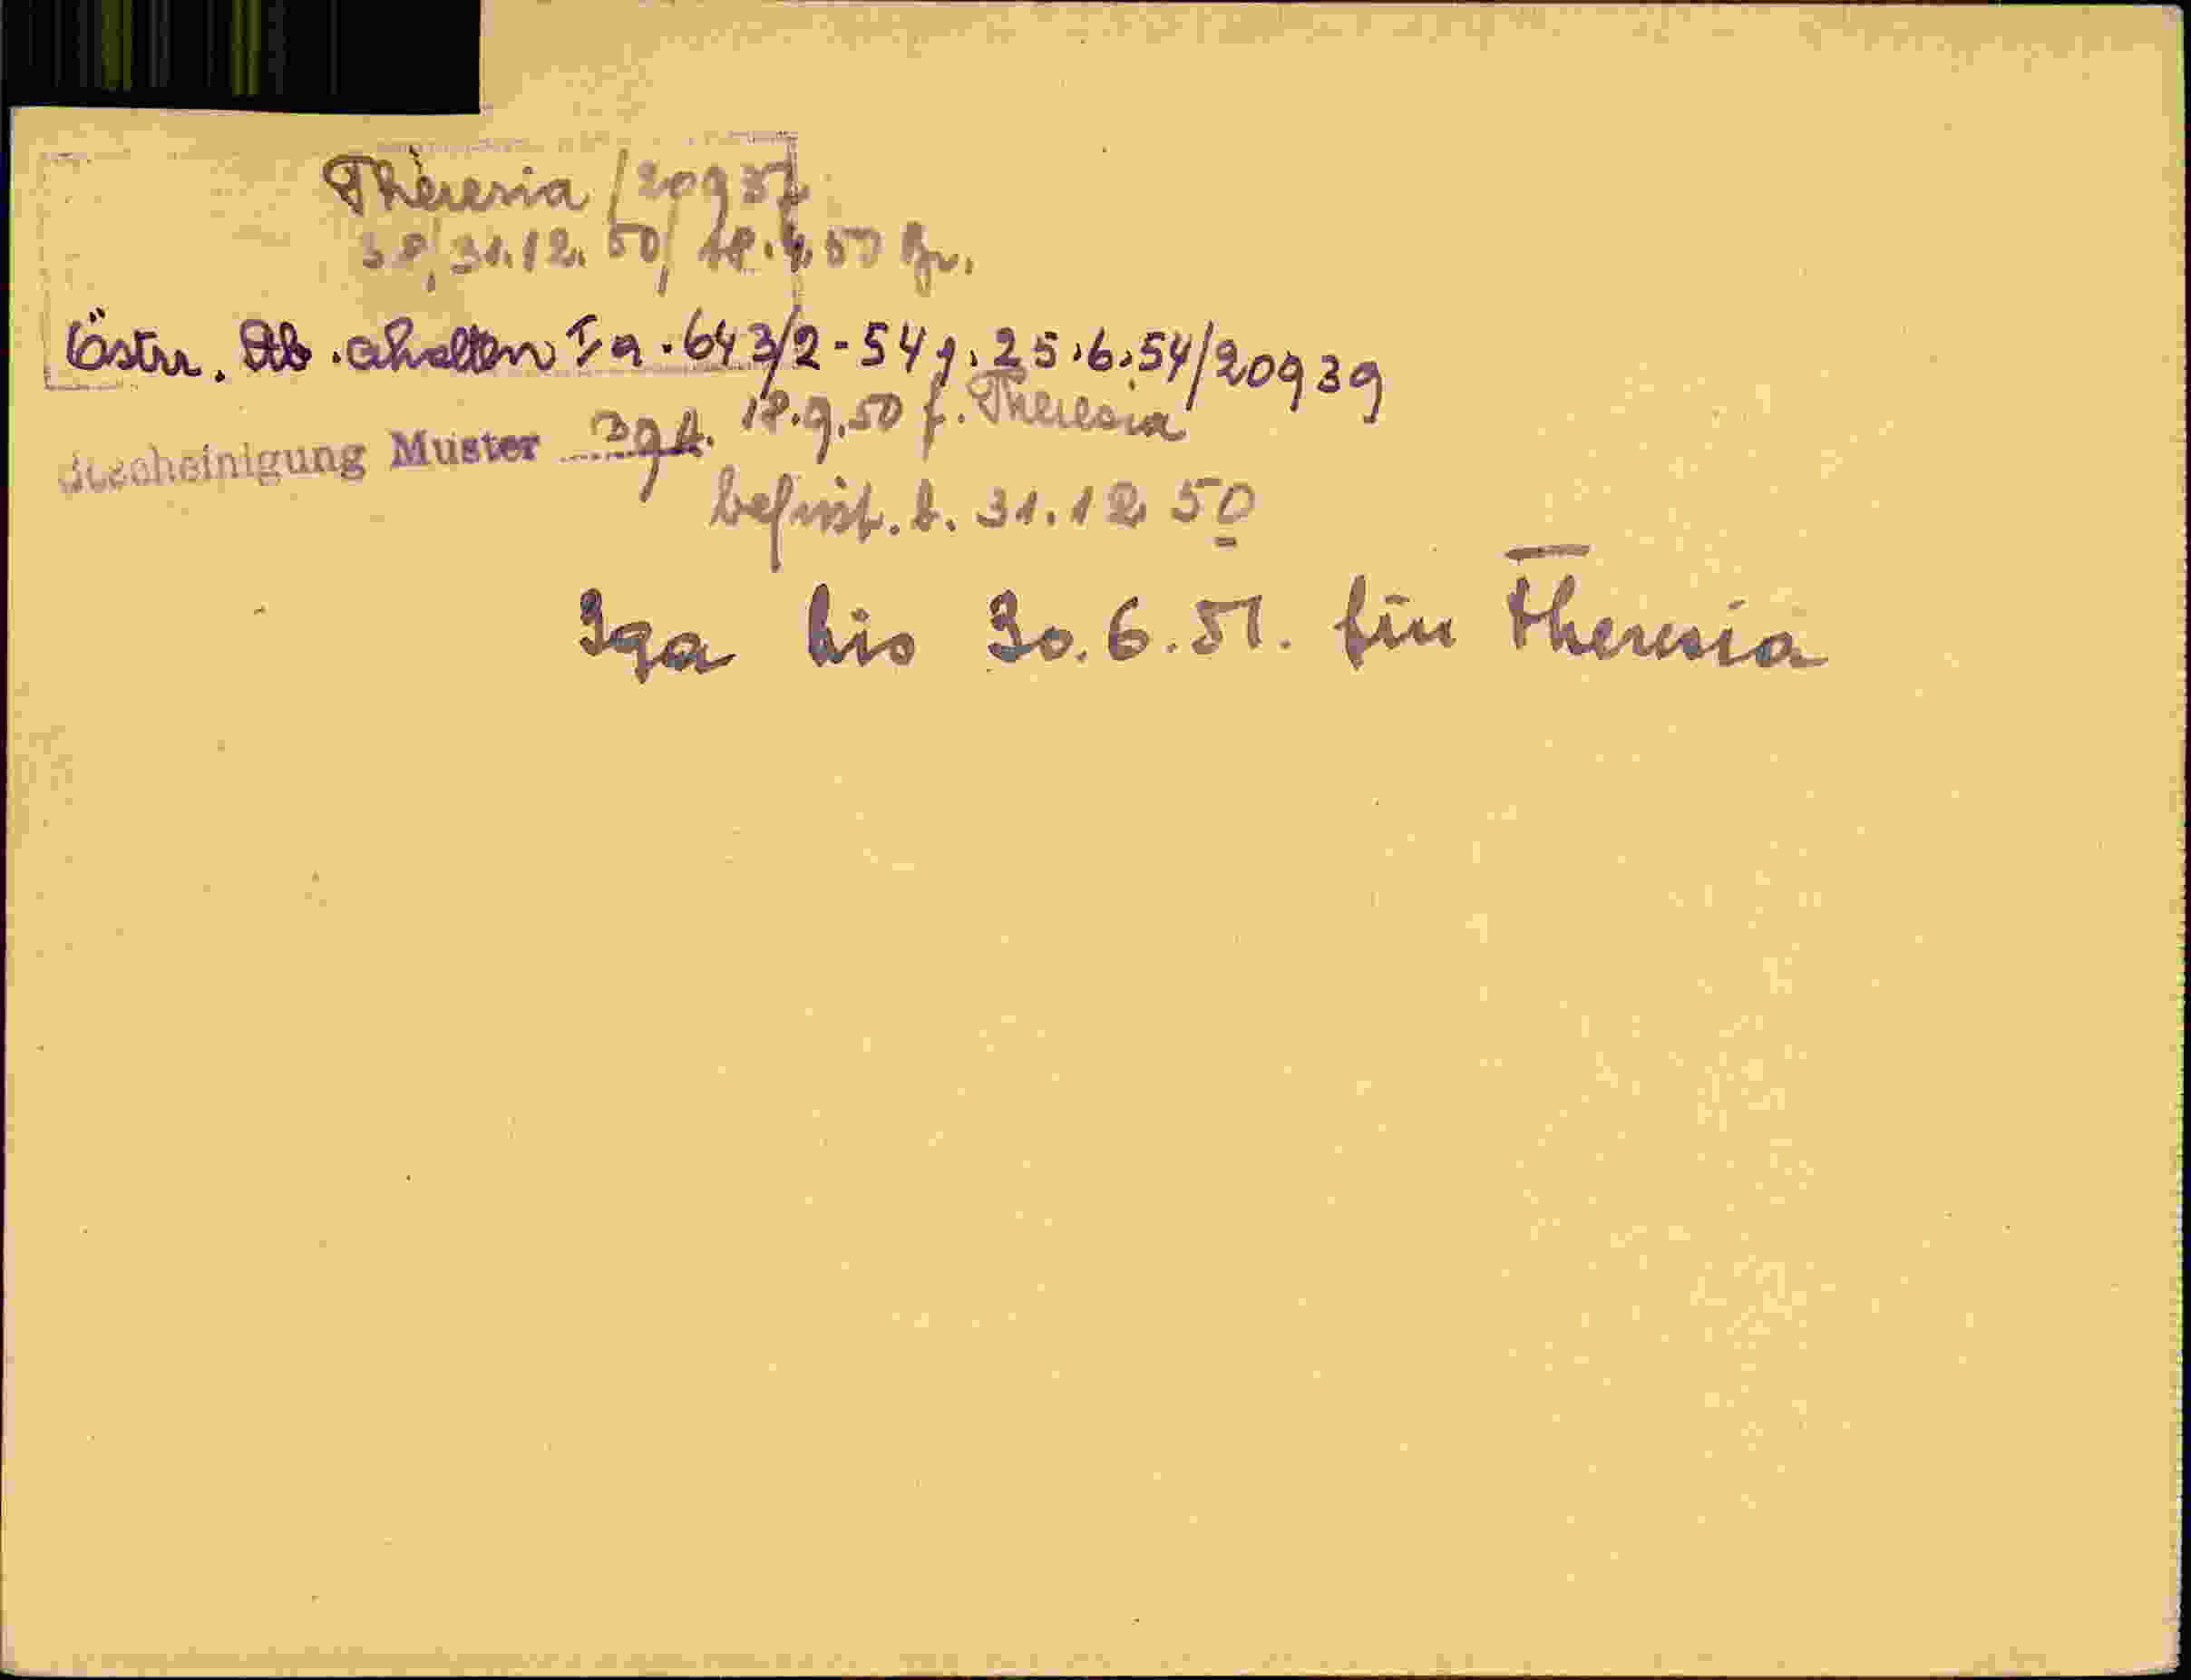 Theresia / 20937
38, 31.12.50, 18.9.50
Östrr. Stb. erhalten Ia. 643/2-54 g. 25.6.54/20939
Bescheinigung Muster 39A. 18.9.50 f. Theresia
befrist. b. 31.12 50
39a bis 30.6.51. für Theresia